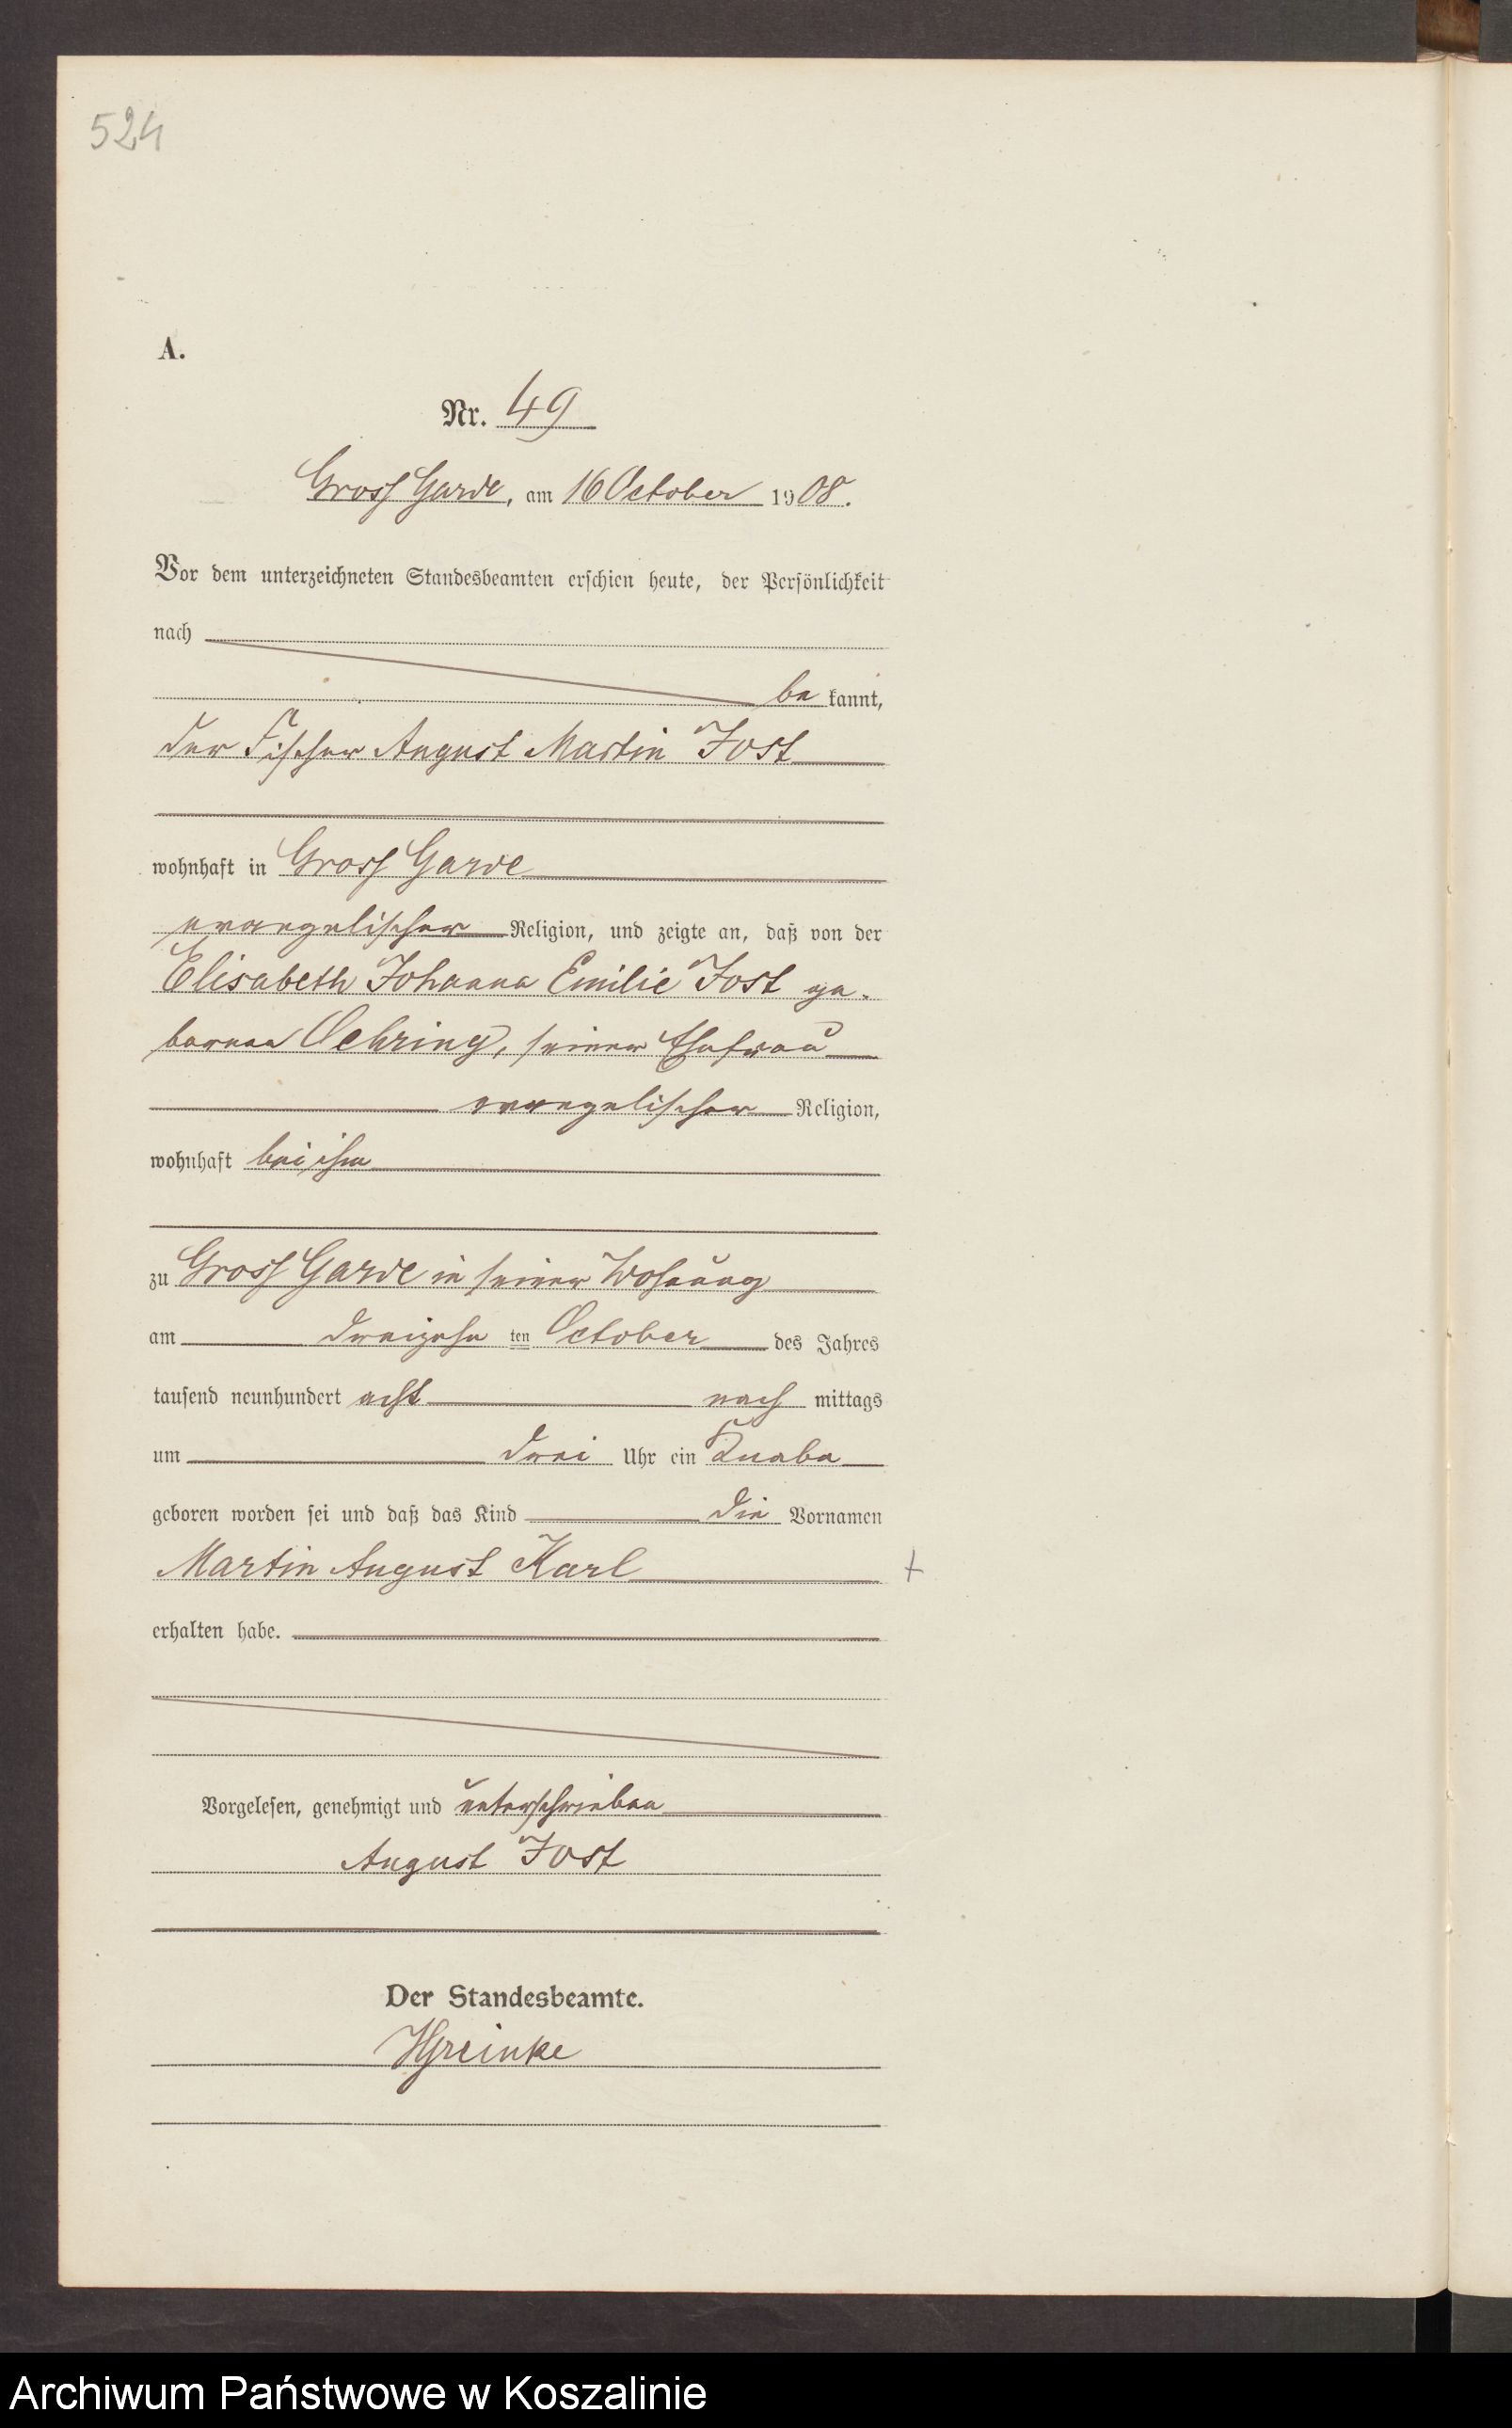 524
A.
Nr. 49
Gross Garde, am 16 October 1908.
Vor dem unterzeichneten Standesbeamten erschien heute, der Persönlichkeit
nach
bekannt,
der Fischer August Martin Jost
wohnhaft in Gross Garde
evangelischer Religion, und zeigte an, daß von der
Elisabeth Johanna Emilie Jost ge-
borenen Oehring, seiner Ehefrau
evangelischer Religion,
wohnhaft bei ihm
zu Gross Garde in seiner Wohnung
am dreizehnten October des Jahres
tausend neunhundert acht nachmittags
um drei Uhr ein Knabe
geboren worden sei und daß das Kind die Vornamen
Martin August Karl +
erhalten habe.
Vorgelesen, genehmigt und unterschrieben
August Jost
Der Standesbeamte.
HGreinke
Archiwum Państwowe w Koszalinie